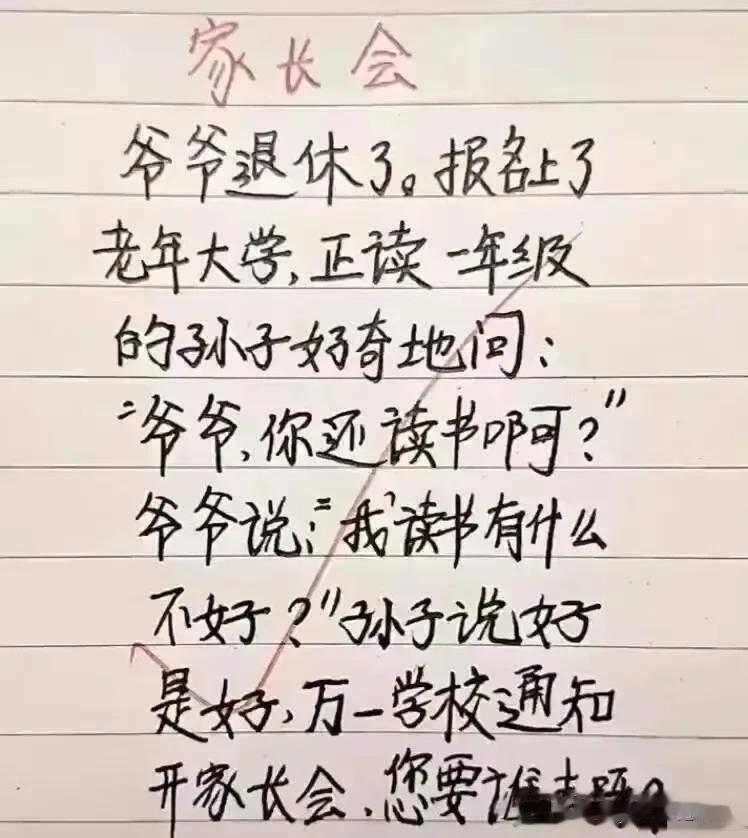 家长会
爷爷退休了。报名上了
老年大学,正读一年级
的孙子好奇地问:
“爷爷,你还读书啊?”
爷爷说:“我读书有什么
不好?”孙子说好
是好,万一学校通知
开家长会,您要谁去